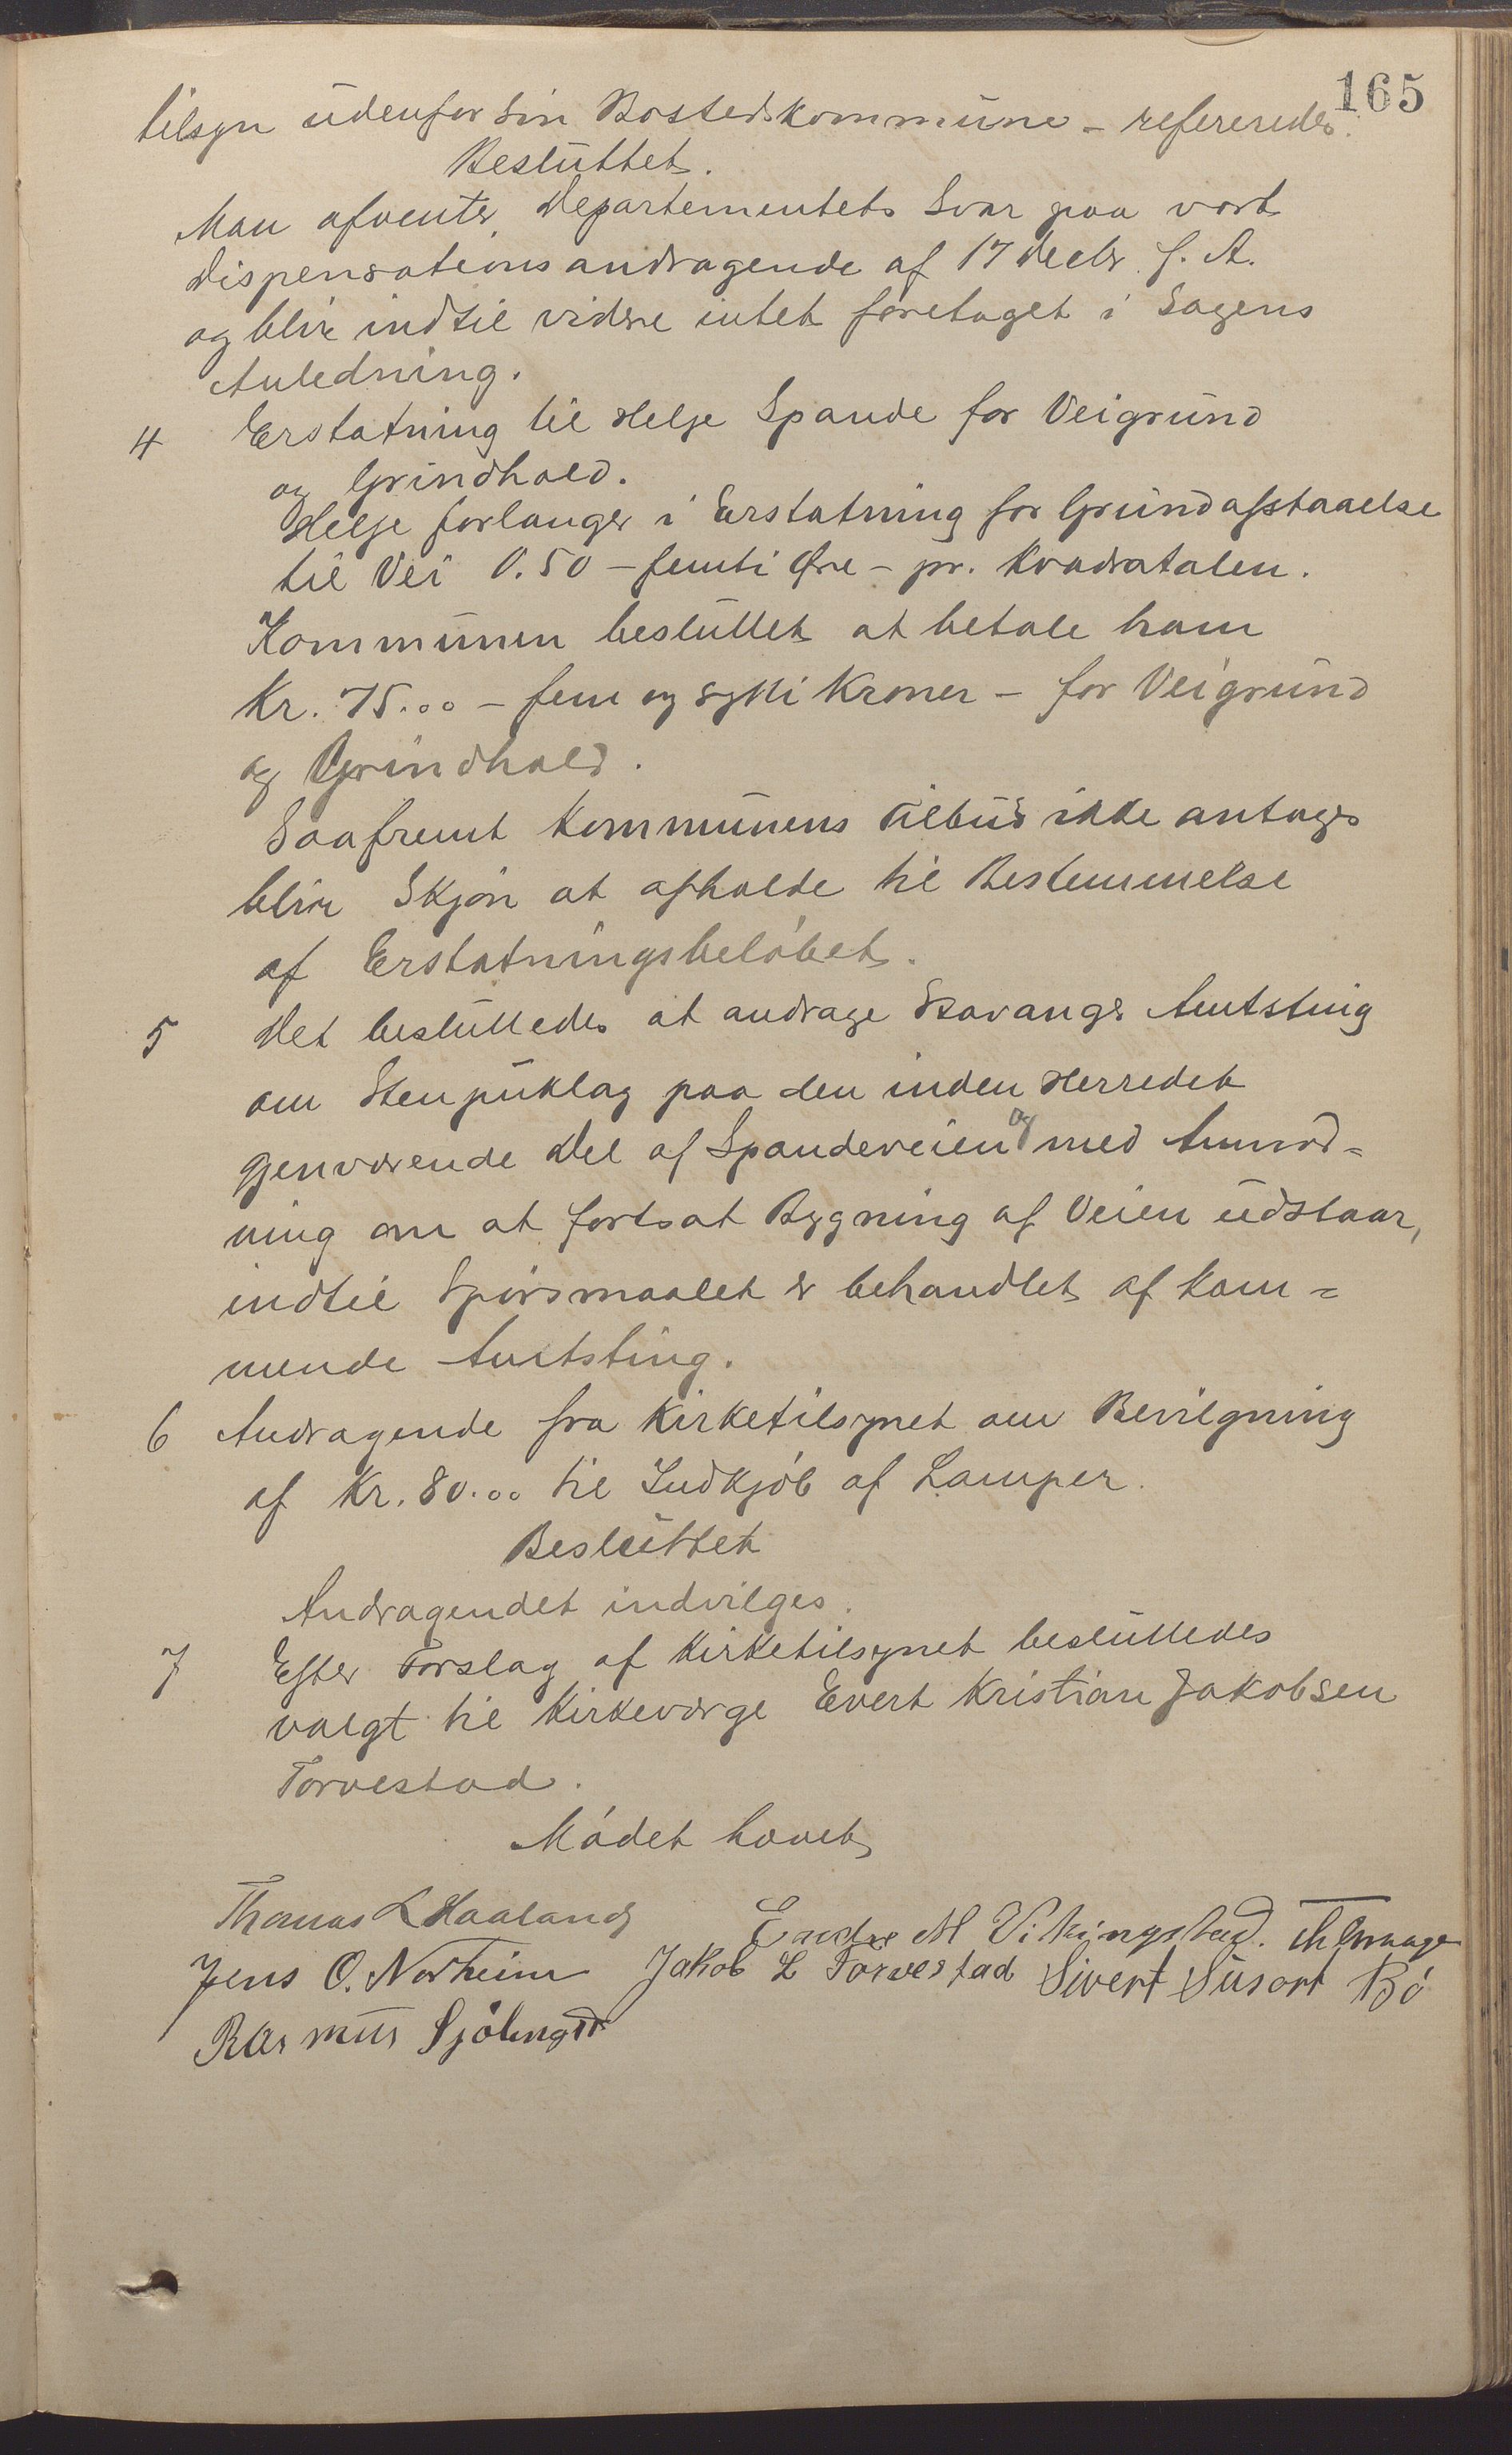 165
tilsyn udenfor sin Bostedskommune – refereredes.
Besluttet.
Man afventer Departementets Svar paa vort
Dispensationsandragende af 17 Decbr. f. A.
og blir indtil videre intet foretaget i Sagens
Anledning.
4 Erstatning til Helje Spande for Veigrund
og Grindhold.
Helje forlanger i Erstatning for Grundafstaaelse
til Vei 0.50 – femti Øre – pr. Kvadratalen.
Kommunen besluttet at betale ham
Kr. 75.00 – fem og sytti Kroner – for Veigrund
og Grindhold.
Saafremt Kommunens Tilbud ikke antages
blir Skjøn at afholde til Bestemmelse
af Erstatningsbeløbet.
5 Det besluttedes at andrage Stavanger Amtsting
om Stenpuklag paa den inden Herredet
gjenværende Del af Spandeveien og med Anmod=
ning om at fortsat Bygning af Veien udstaar,
indtil Spørsmaalet er behandlet af kom=
mende Amtsting.
6 Andragende fra Kirketilsynet om Bevilgning
af Kr. 80.00 til Indkjøb af Lamper.
Besluttet
Andragendet indvilges.
7 Efter Forslag af Kirketilsynet besluttedes
valgt til Kirkeværge Evert Kristian Jakobsen
Torvestad.
Mødet hævet
Thomas L Haaland Endre M Vikingstad.
Jens O. Norheim Jakob L Torvestad Sivert Susort Bø
Rasmus